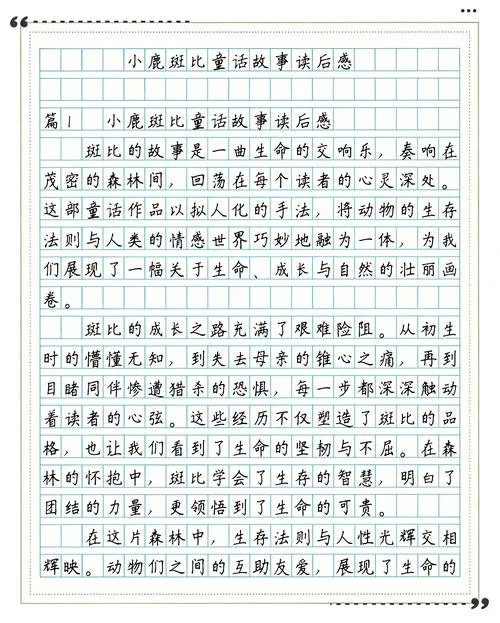 小鹿斑比童话故事读后感
篇1 小鹿斑比童话故事读后感
斑比的故事是一曲生命的交响乐，奏响在
茂密的森林间，回荡在每个读者的心灵深处。
这部童话作品以拟人化的手法，将动物的生存
法则与人类的情感世界巧妙地融为一体，为我
们展现了一幅关于生命、成长与自然的壮丽画
卷。
斑比的成长之路充满了艰难险阻。从初生
时的懵懂无知，到失去母亲的锥心之痛，再到
目睹同伴惨遭猎杀的恐惧，每一步都深深触动
着读者的心弦。这些经历不仅塑造了斑比的品
格，也让我们看到了生命的坚韧与不屈。在森
林的怀抱中，斑比学会了生存的智慧，明白了
团结的力量，更领悟到了生命的可贵。
在这片森林中，生存法则与人性光辉交相
辉映。动物们之间的互助友爱，展现了生命的